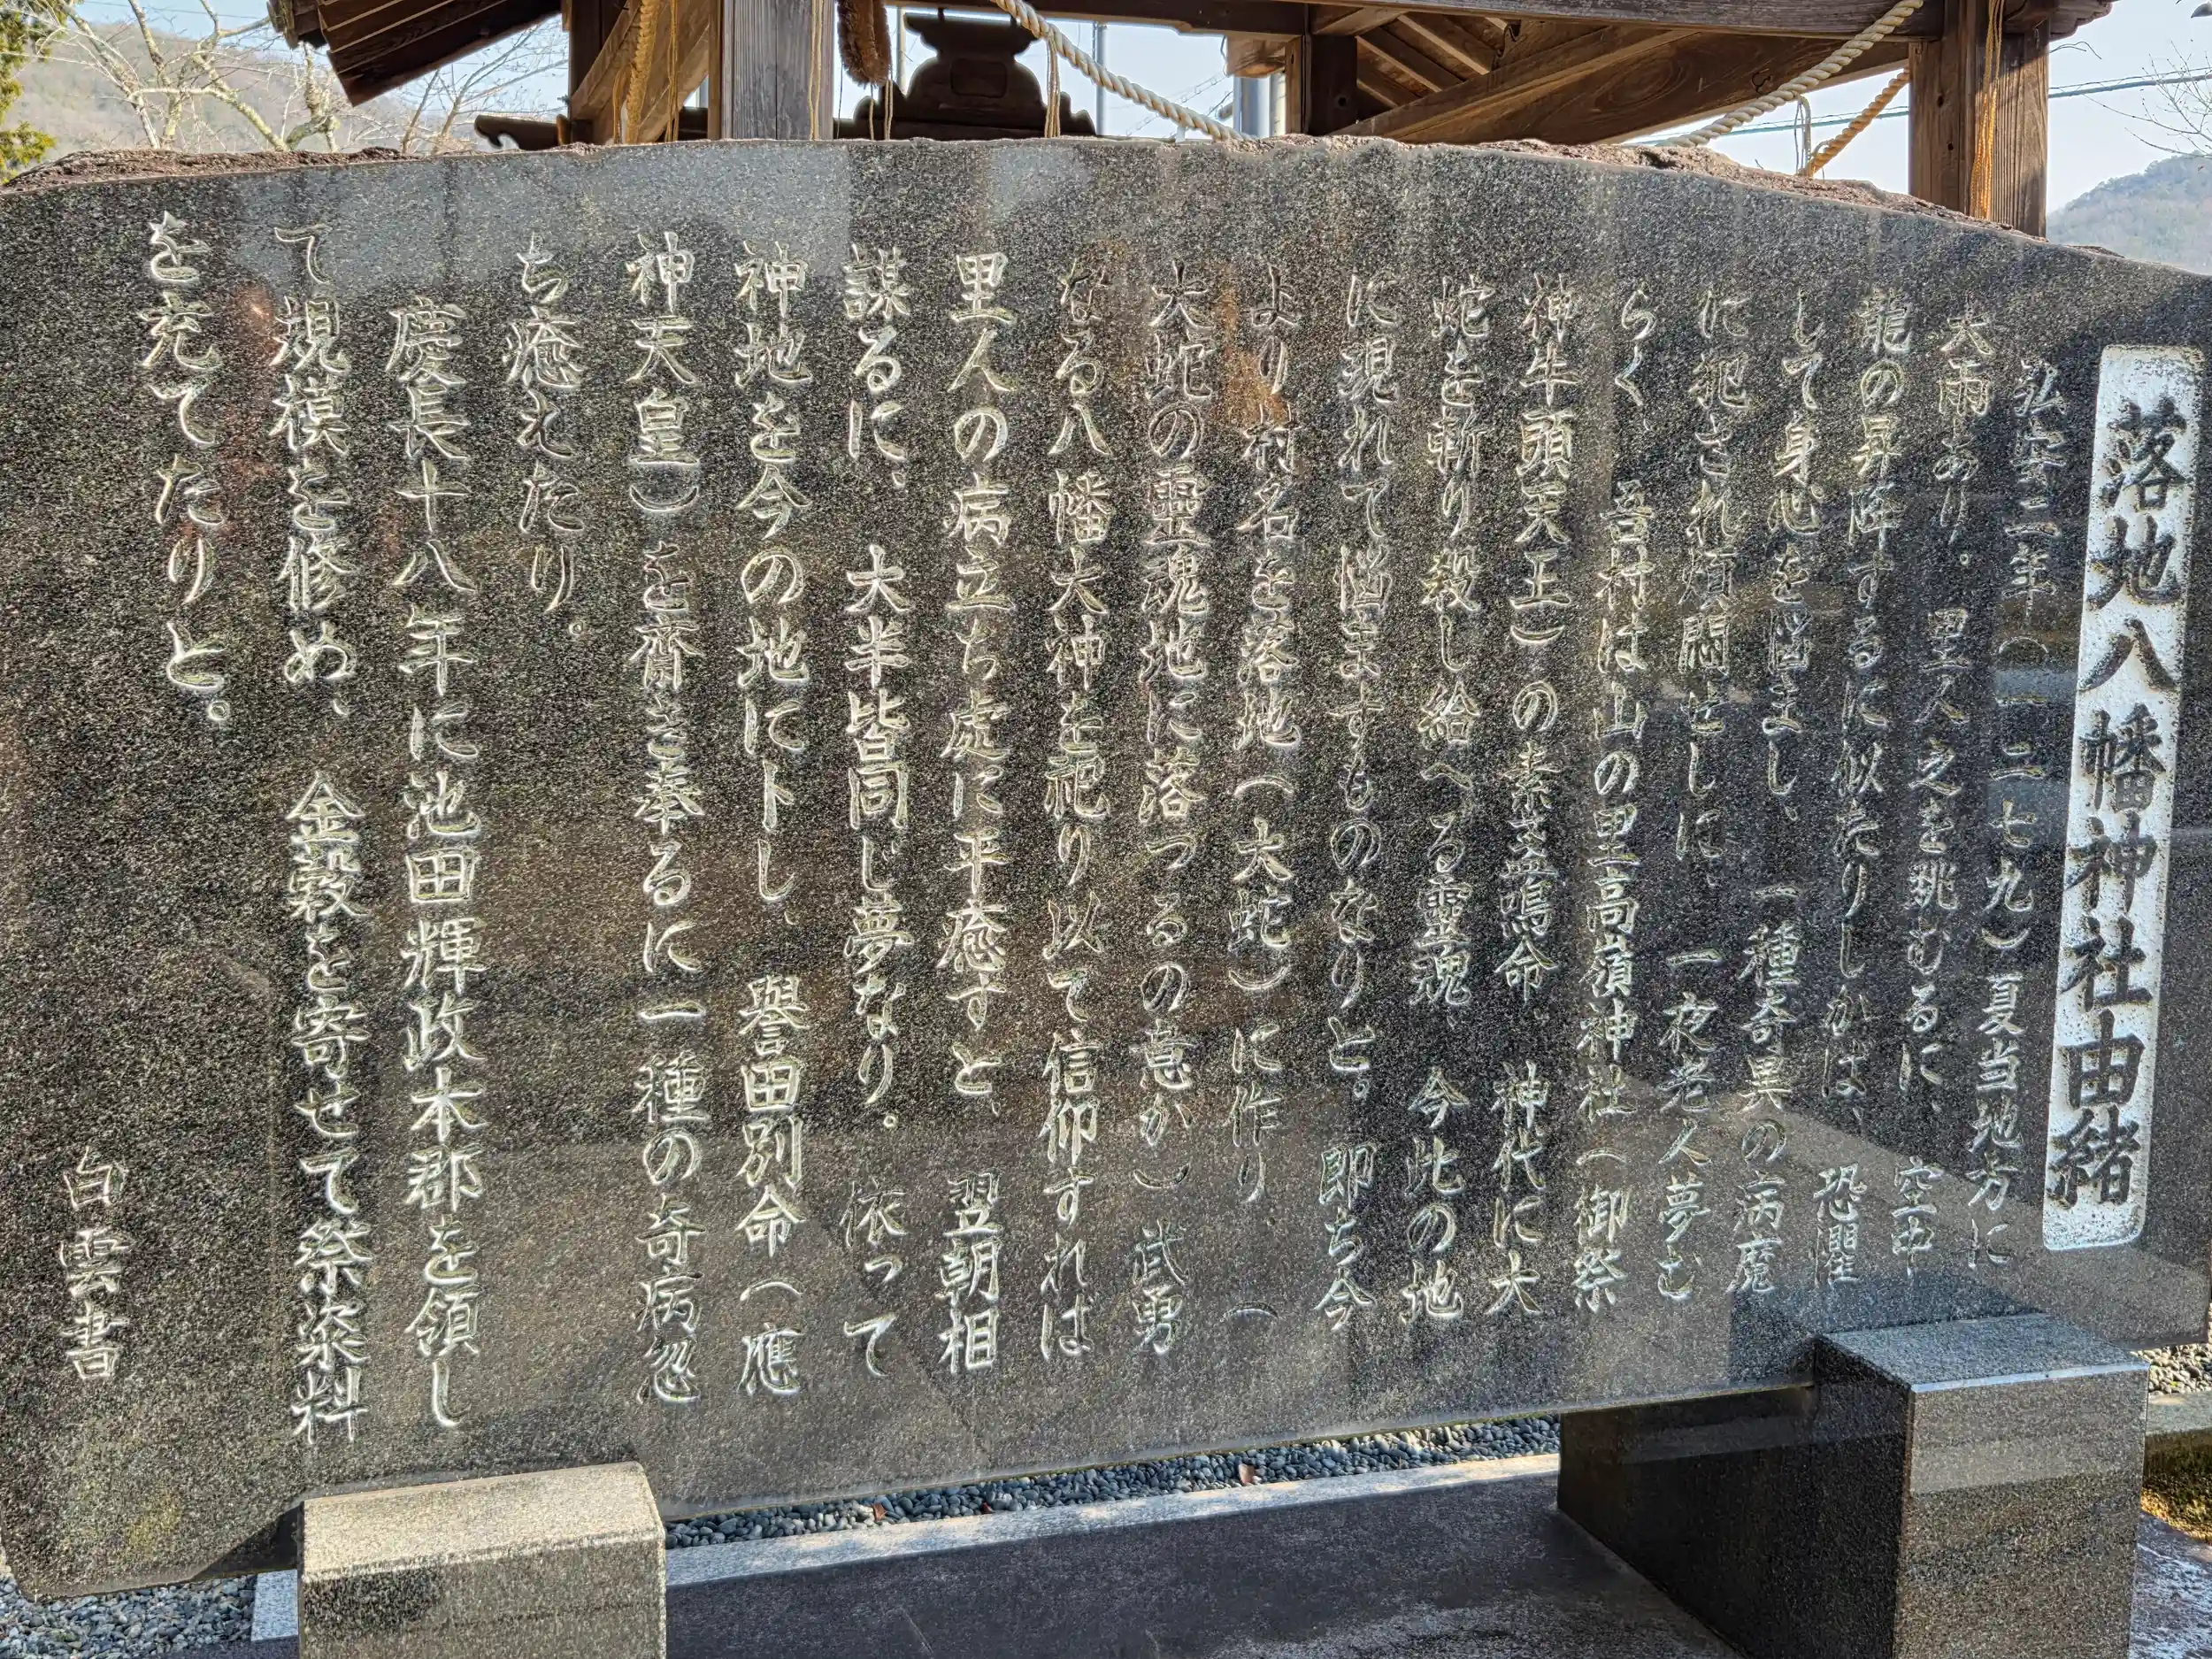 落地八幡神社由緒
弘安二年（一二七九）夏当地方に
大雨あり。里人之を眺むるに、空中
龍の昇降するに似たりしかば、恐懼
して身心を悩まし、一種奇異の病魔
に犯され煩悶せしに、一夜老人夢む
らく、吾村は山の里高嶺神社（御祭
神牛頭天王）の素盞鳴命、神代に大
蛇を斬り殺し給へる靈魂、今此の地
に現れて悩ますものなりと。即ち今
より村名を落地（大蛇）に作り（
大蛇の靈魂地に落つるの意か）武勇
なる八幡大神を祀り以て信仰すれば
里人の病立ち處に平癒すと、翌朝相
謀るに、大半皆同じ夢なり。依って
神地を今の地に卜し、譽田別命（應
神天皇）を齋き奉るに一種の奇病忽
ち癒えたり。
慶長十八年に池田輝政本郡を領し
て規模を修め、金穀を寄せて祭粢料
を充てたりと。
白雲書